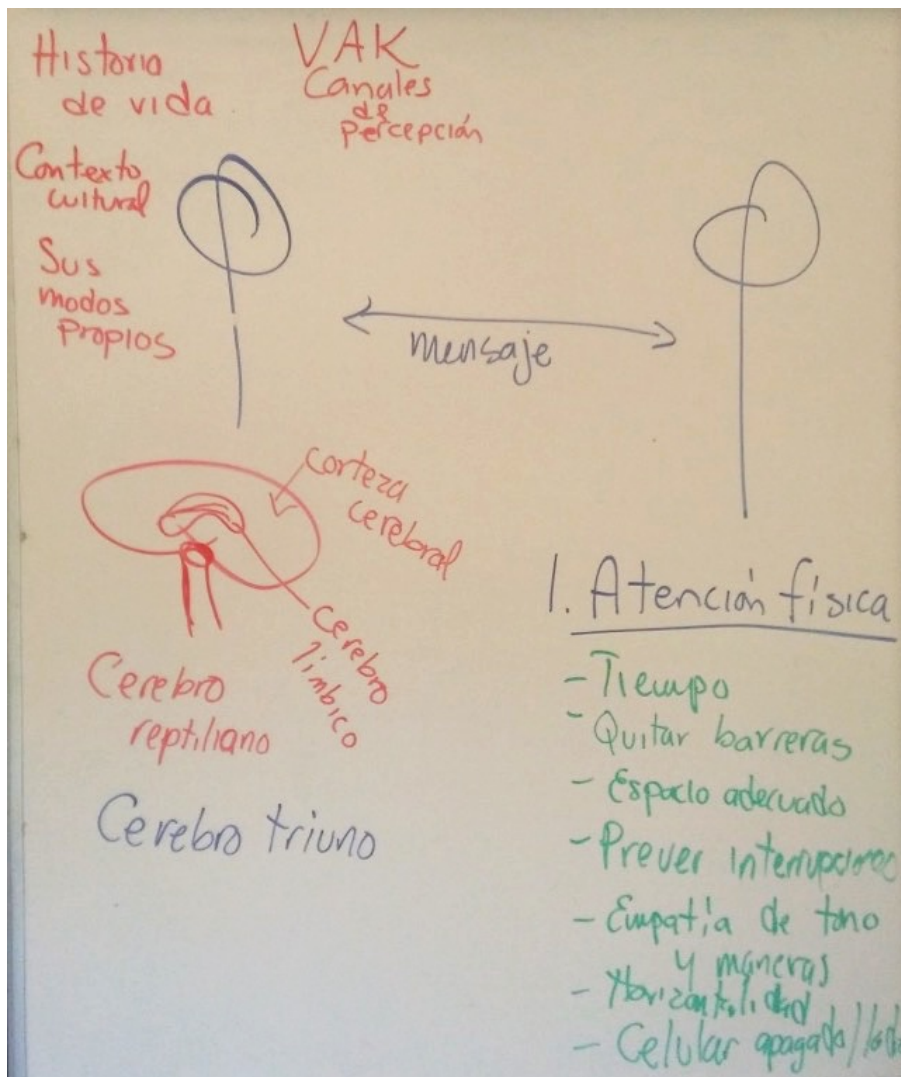 Historia
de vida
VAK
Canales
de
Percepción
Contexto
cultural
Sus
modos
Propios
mensaje
corteza
cerebral
cerebro
límbico
Cerebro
reptiliano
Cerebro triuno
1. Atención física
- Tiempo
- Quitar barreras
- Espacio adecuado
- Prever interrupciones
- Empatía de tono
y maneras
- Horizontalidad
- Celular apagado/